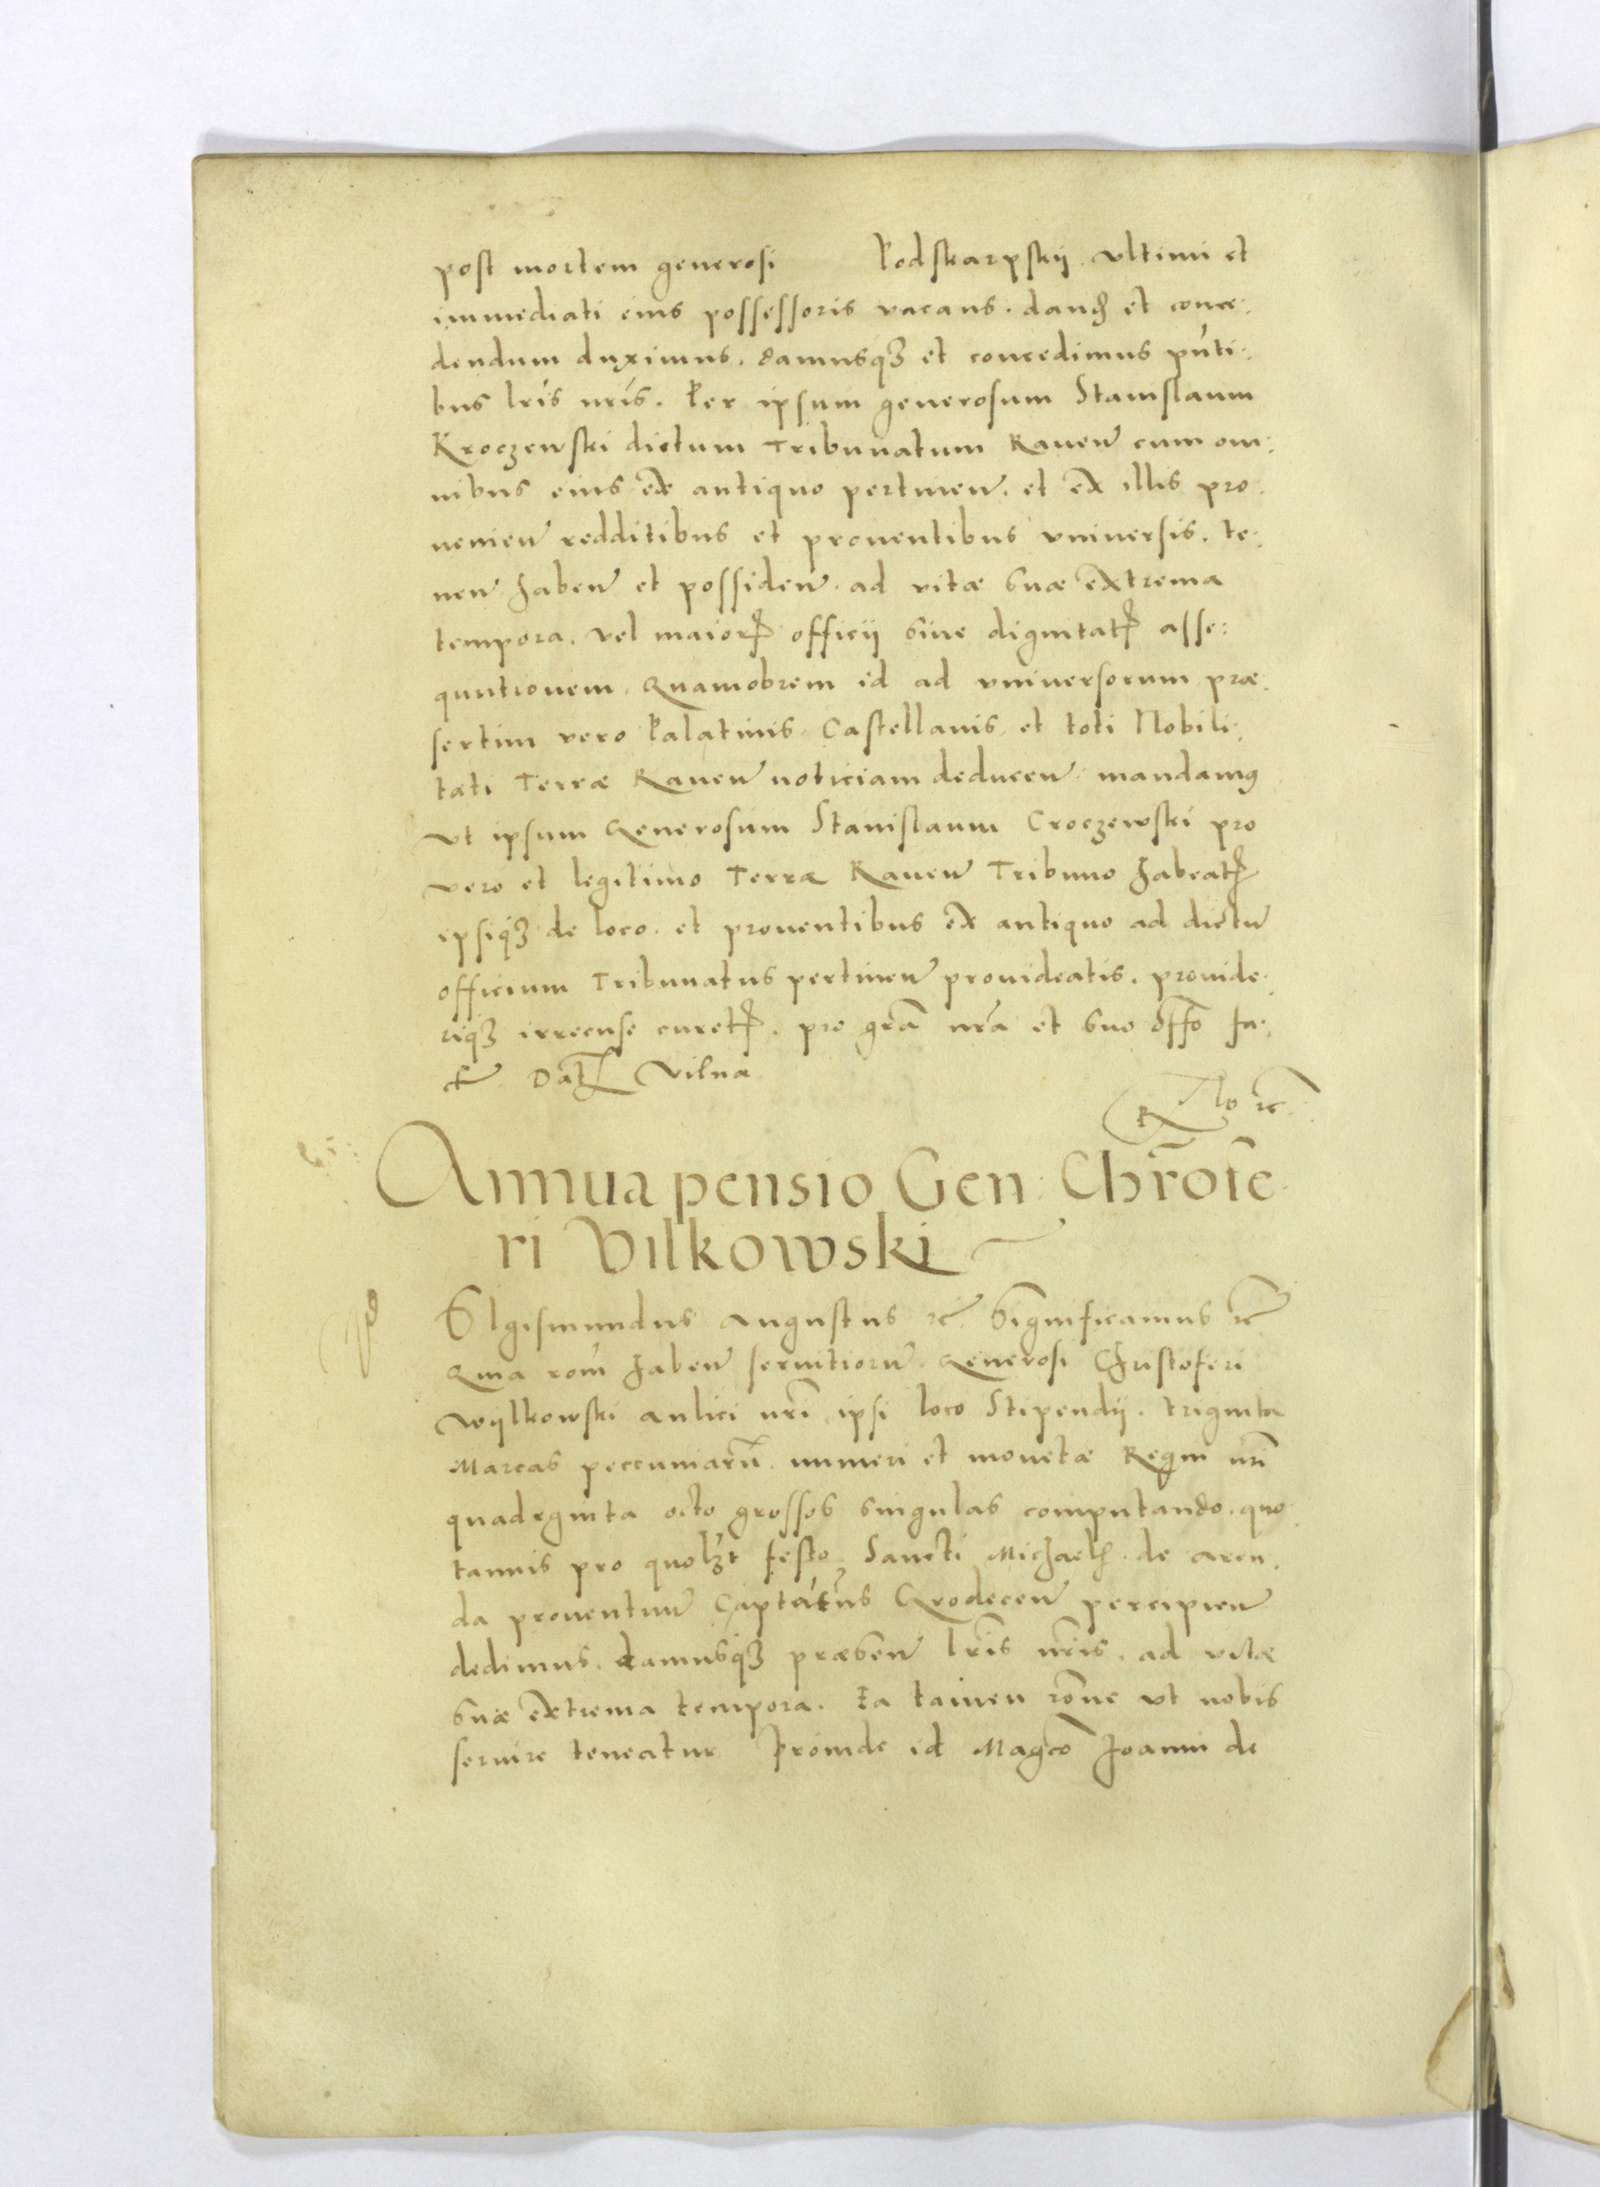 post mortem generosi Podskarpskij ultimi et
immediati eius possessoris vacans. dand et conce:
dendum duximus. damusqȝ et concedimus pnti:
bus lris nris. Per ipsum generosum Stanislaum
Kroczewski dictum Tribunatum Raven cum om:
nibus eius ex antiquo pertinen. et ex illis pro:
venien redditibus et proventibus vniversis. te:
nen haben et possiden. ad vitæ suæ extrema
tempora. vel maioris officii sive dignitatis asse:
quutionem. Quamobrem id ad vniversorum præ:
sertim vero Palatinis Castellanis et toti Nobili:
tati Terræ Raven noticiam deducen. mandamus
vt ipsum Generosum Stanislaum Croczewski pro
vero et legitimo Terræ Raven Tribuno habeatis
ipsiqȝ de loco. et proventibus ex antiquo ad dictu
officium Tribunatus pertinen provideatis. provide:
riqȝ irrecuse curetis. pro gra nra et suo offo fa:
ctur Dat Vilnæ
Annua pensio Gen: Chrofe
ri Vilkowski
SIgismundus Augustus etc. Significamus etc
Quia rom haben servitioru Generosi Christoferi
Wylkowski aulici nri ipsi loco Stipendij. triginta
Marcas peccuniaru. numeri et monetæ Regni nri
quadraginta octo grossos singulas computando. quo
tannis pro quolȝt festo Sancti Michaelis de aren:
da proventuu Captatus Grodecen percipien
dedimus. damusqȝ præsen lris nris. ad vitæ
suæ extrema tempora. Ea tamen rone vt nobis
servire teneatur Proinde id Magco Joanni de